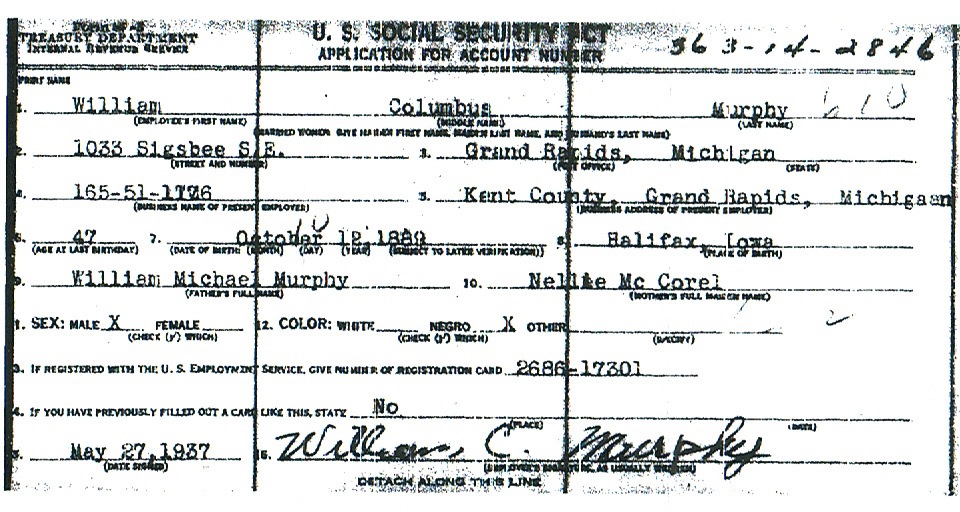 FORM SS-5
TREASURY DEPARTMENT
INTERNAL REVENUE SERVICE
U. S. SOCIAL SECURITY ACT
APPLICATION FOR ACCOUNT NUMBER
363-14-2846
PRINT NAME
1. William Columbus Murphy
(EMPLOYEE'S FIRST NAME) (MIDDLE NAME) (LAST NAME)
(MARRIED WOMEN: GIVE MAIDEN FIRST NAME, MAIDEN LAST NAME, AND HUSBAND'S LAST NAME)
2. 1033 Sigsbee S.E. 3. Grand Rapids, Michigan
(STREET AND NUMBER) (POST OFFICE) (STATE)
4. 165-51-1726 5. Kent County, Grand Rapids, Michigaan
(BUSINESS NAME OF PRESENT EMPLOYER) (BUSINESS ADDRESS OF PRESENT EMPLOYER)
6. 47 7. October 12 1889 8. Halifax, Iowa
(AGE AT LAST BIRTHDAY) (DATE OF BIRTH: (MONTH) (DAY) (YEAR) (SUBJECT TO LATER VERIFICATION)) (PLACE OF BIRTH)
9. William Michael Murphy 10. Nellie Mc Corel
(FATHER'S FULL NAME) (MOTHER'S FULL MAIDEN NAME)
1. SEX: MALE X FEMALE 12. COLOR: WHITE NEGRO X OTHER
(CHECK (✓) WHICH) (CHECK (✓) WHICH) (SPECIFY)
3. IF REGISTERED WITH THE U. S. EMPLOYMENT SERVICE, GIVE NUMBER OF REGISTRATION CARD 2686-17301
4. IF YOU HAVE PREVIOUSLY FILLED OUT A CARD LIKE THIS, STATE No
(PLACE) (DATE)
5. May 27,1937 16. William C. Murphy
(DATE SIGNED) (EMPLOYEE'S SIGNATURE, AS USUALLY WRITTEN)
DETACH ALONG THIS LINE